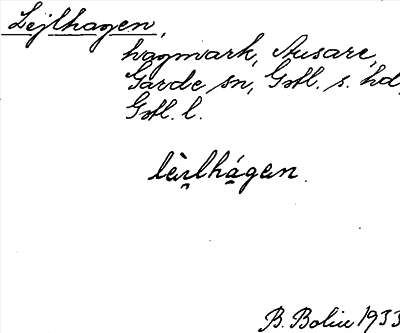 Lejlhagen,
hagmark, Ausare,
Garde sn, Gotl. s. hd,
Gotl. l.
lèi̯lhágen.
B. Bolin 1933